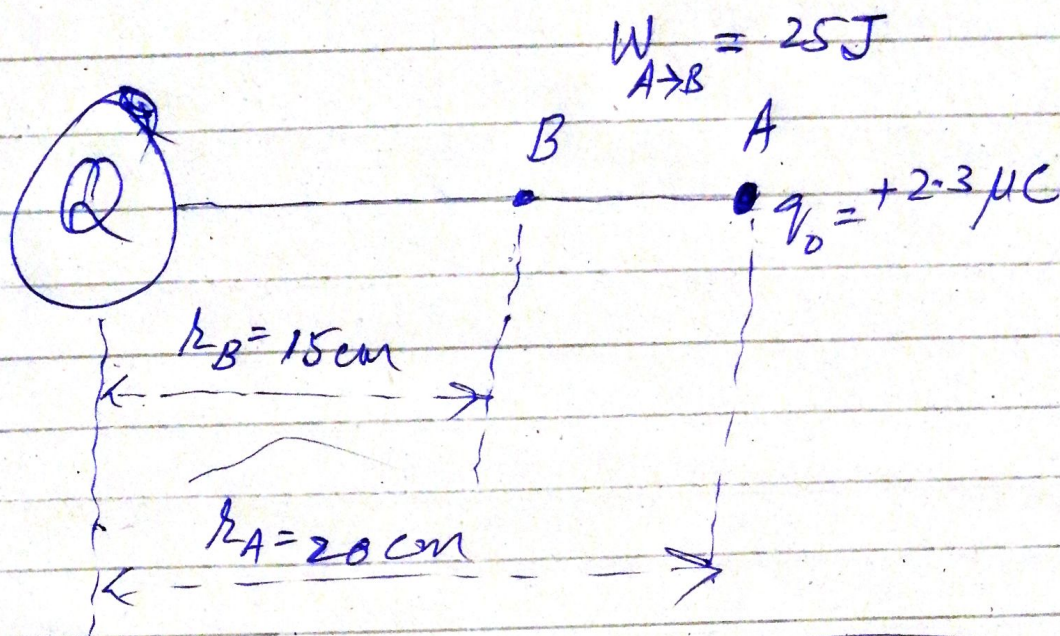 W A→B = 25J
B A
Q
q₀ = +2.3 μC
r_B = 15cm
r_A = 20cm